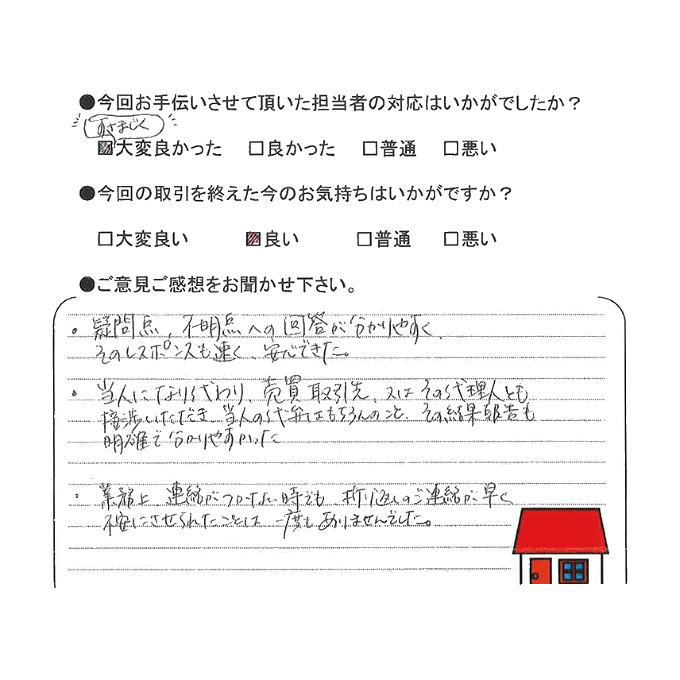 ●今回お手伝いさせて頂いた担当者の対応はいかがでしたか？
すさまじく
▨大変良かった □良かった □普通 □悪い
●今回の取引を終えた今のお気持ちはいかがですか？
□大変良い ▨良い □普通 □悪い
●ご意見ご感想をお聞かせ下さい。
・疑問点、不明点への回答が分かりやすく
そのレスポンスも速く、安心できた。
・当人になり代わり、売買取引先、又はその代理人とも
接渉いただき、当人の代弁はもちろんのこと、その結果報告も
明確で分かりやすかった
・業務上 連絡がつかない時でも 折り返しのご連絡が早く
不安にさせられたことは 一度もありませんでした。